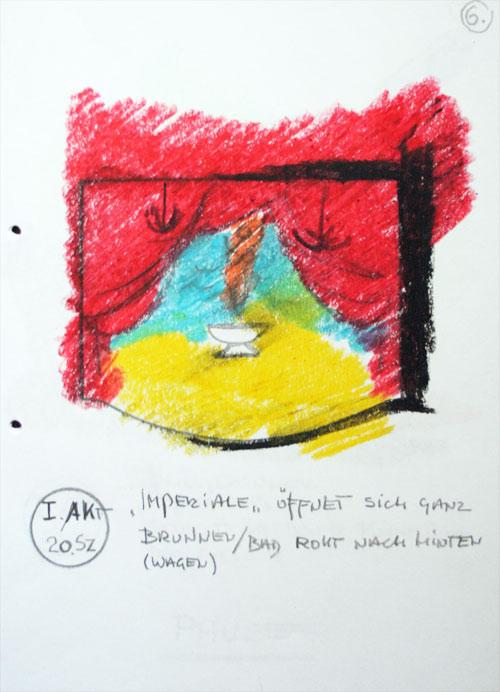 6.
I. AKT „IMPERIALE„ ÖFFNET SICH GANZ
20. SZ BRUNNEN/BAD ROLLT NACH HINTEN
(WAGEN)